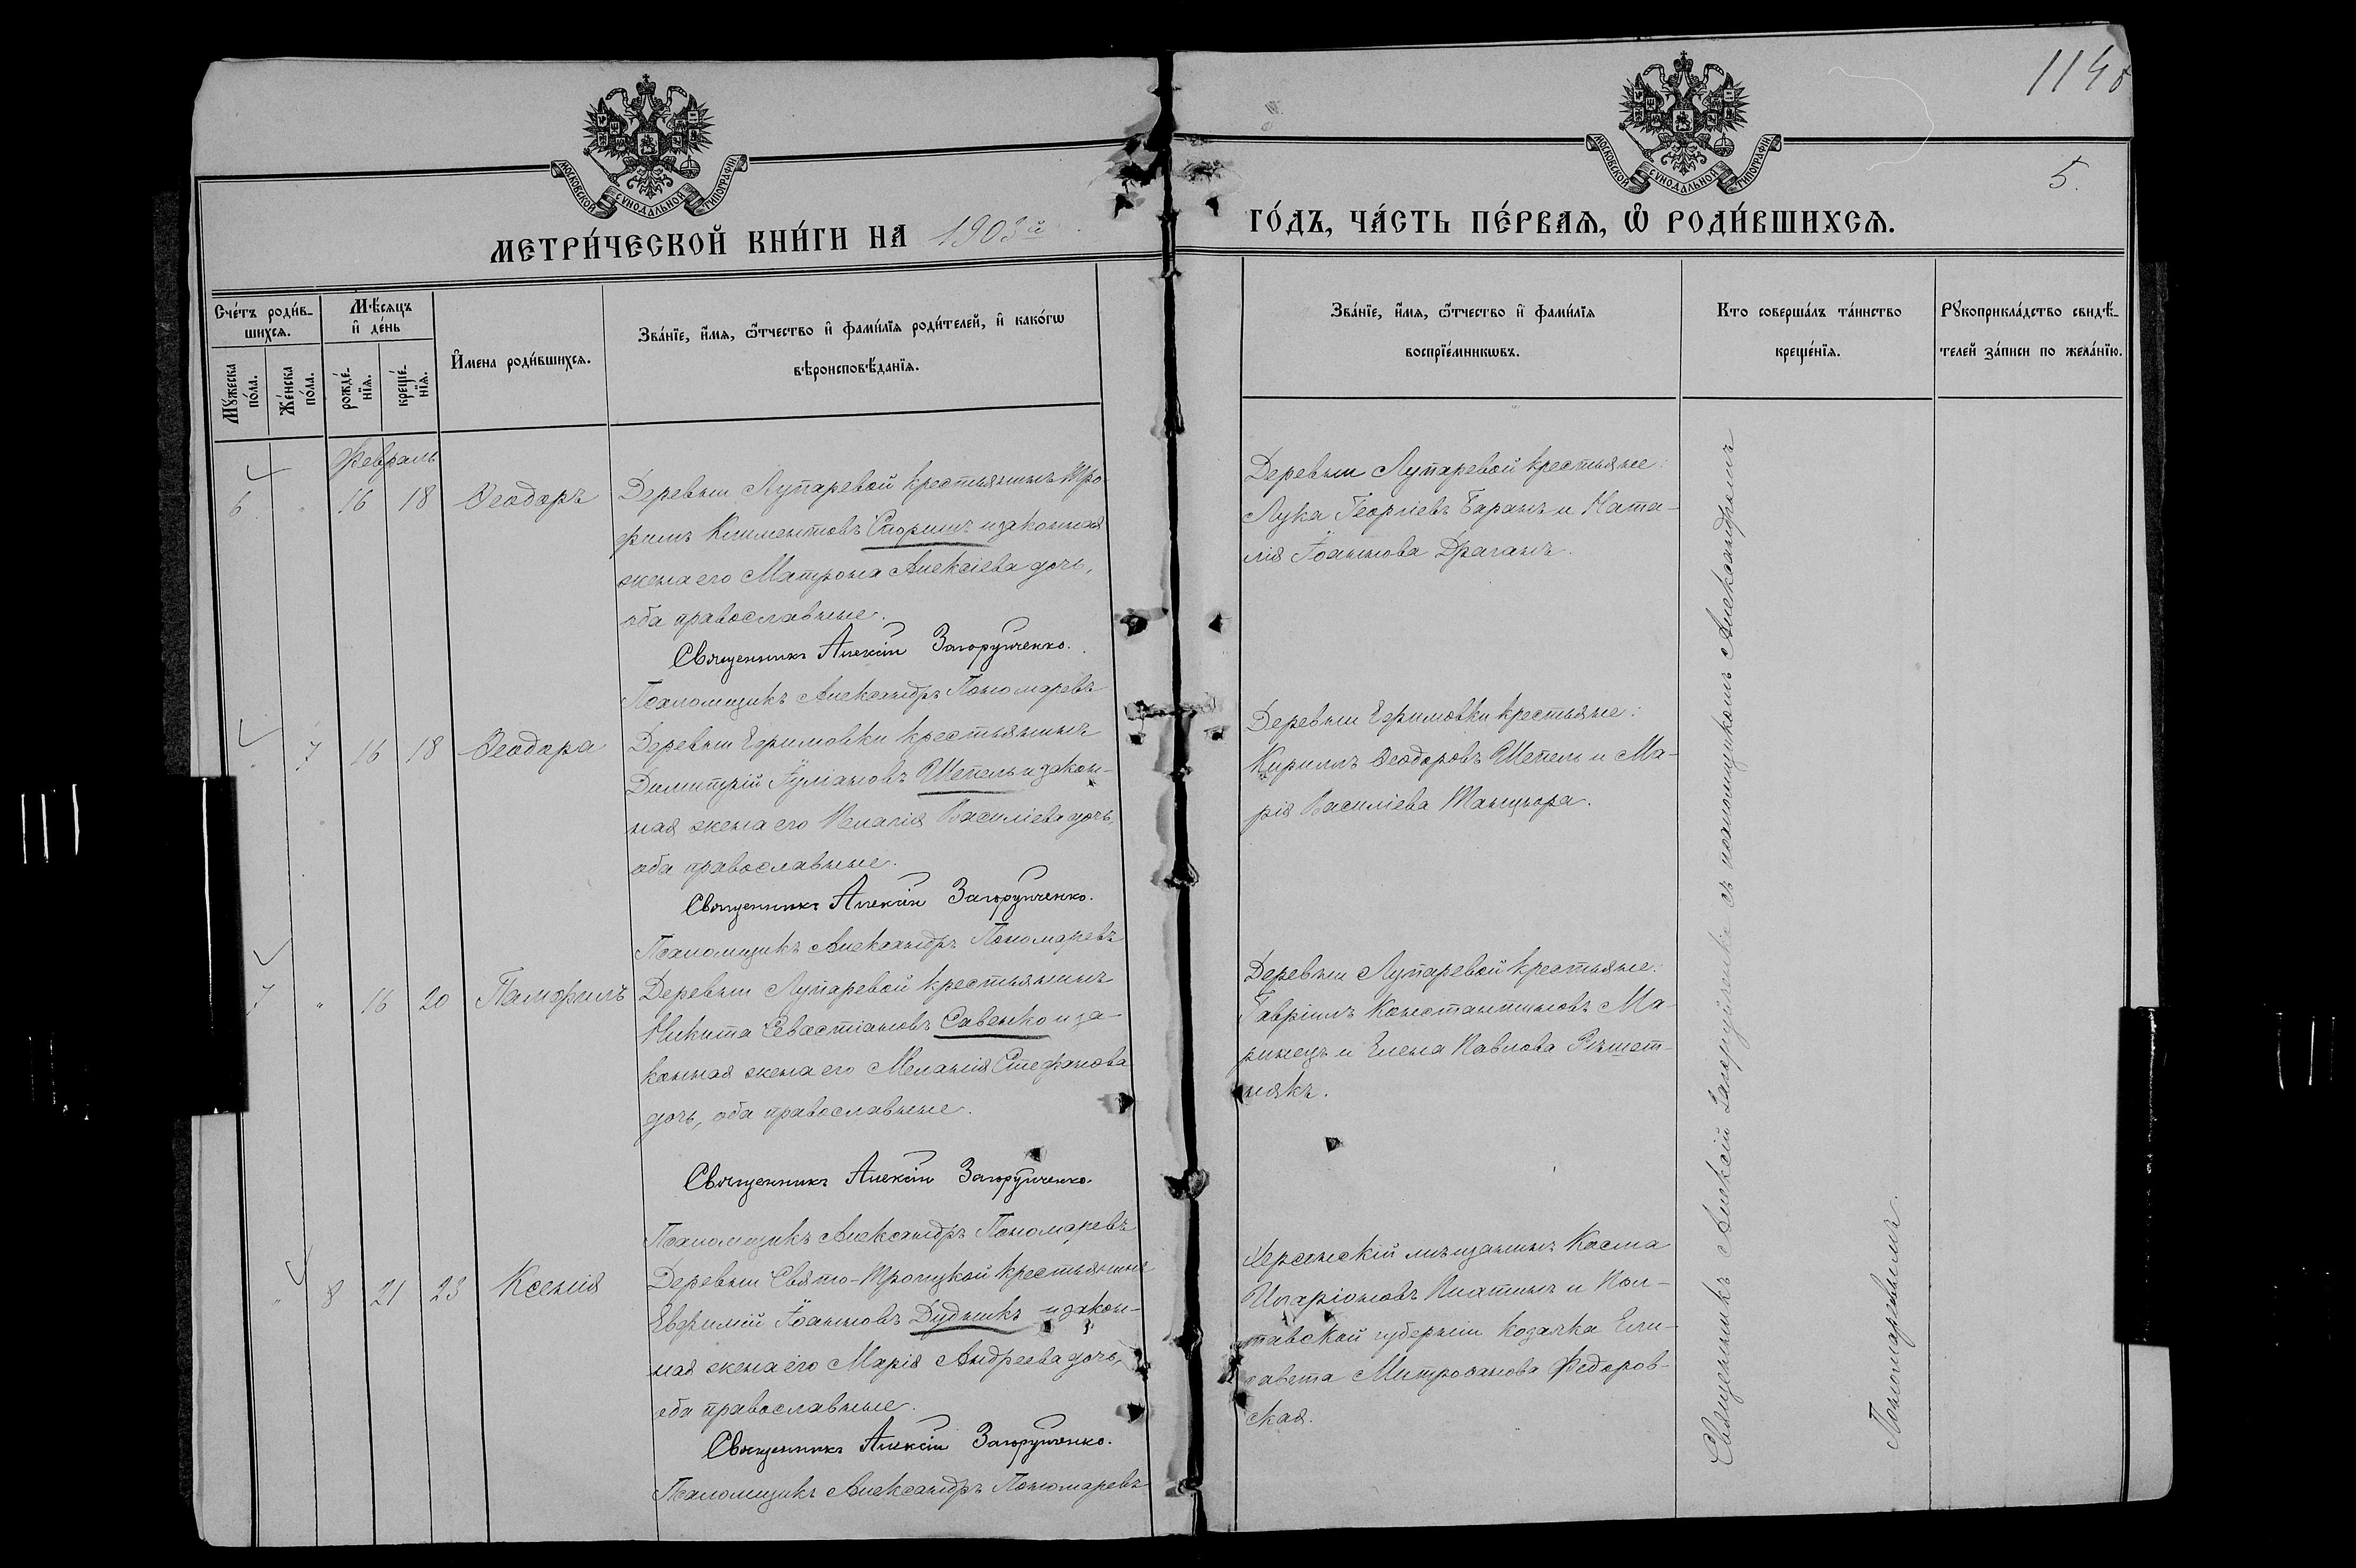 1148
МОСКОВСКОЙ СУНОДАЛЬНОЙ ТИПОГРАФІИ
МОСКОВСКОЙ СУНОДАЛЬНОЙ ТИПОГРАФІИ
5.
МЕТРИ́ЧЕСКОЙ КНИ́ГИ НА 1903й
ГО́ДЪ, ЧА́СТЬ ПЕ́РВАѦ, Ѡ҆ РОДИ́ВШИХСѦ.
Сче́тъ роди́в-
шихсѧ.
Мꙋ́жеска
по́ла.
Же́нска
по́ла.
Мѣ́сѧцъ
и҆ де́нь
рожде́-
нїѧ.
креще́-
нїѧ.
И҆мена роди́вшихсѧ.
Зва́нїе, и҆́мѧ, ѻ҆́тчество и҆ фами́лїѧ роди́телей, и҆ како́гѡ
вѣроисповѣ́данїѧ.
Зва́нїе, и҆́мѧ, ѻ҆́тчество и҆ фами́лїѧ
воспрїе́мникѡвъ.
Кто соверша́лъ та́инство
креще́нїѧ.
Рꙋкоприкла́дство свидѣ́-
телей за́писи по жела́нїю.
Февраль
6 " 16 18 Ѳеодоръ
Деревни Лупаревой крестьянинъ Тро-
фимъ Климентовъ Споришъ и законная
жена его Матрона Алексіева дочь,
оба православные.
Священникъ Алексій Загоруйченко.
Псаломщикъ Александръ Пономаревъ
Деревни Лупаревой крестьяне:
Лука Георгіевъ Баранъ и Ната-
лія Іоаннова Драганъ.
" 7 16 18 Ѳеодора
Деревни Ефимовки крестьянинъ
Димитрій Іуліановъ Шепель и закон-
ная жена его Пелагія Василіева дочь,
оба православные.
Священникъ Алексій Загоруйченко.
Псаломщикъ Александръ Пономаревъ
Деревни Ефимовки крестьяне:
Кириллъ Ѳеодоровъ Шепель и Ма-
рія Василіева Танцюра.
7 " 16 20 Памфилъ
Деревни Лупаревой крестьянинъ
Никита Севастіановъ Савенко и за-
конная жена его Меланія Стефанова
дочь, оба православные.
Священникъ Алексій Загоруйченко.
Псаломщикъ Александръ Пономаревъ
Деревни Лупаревой крестьяне:
Гавріилъ Константиновъ Ма-
ринецъ и Елена Павлова Рѣшет-
някъ.
" 8 21 23 Ксенія
Деревни Свято-Троицкой крестьянинъ
Евфимій Іоанновъ Дудникъ и закон-
ная жена его Марія Андреева дочь,
оба православные.
Священникъ Алексій Загоруйченко.
Псаломщикъ Александръ Пономаревъ
Херсонскій мѣщанинъ Косма
Иларіоновъ Платинъ и Пол-
тавской губерніи козачка Ели-
савета Митрофанова Федоров-
ская.
Священникъ Алексій Загоруйченко съ псаломщикомъ Александромъ
Пономаревымъ.